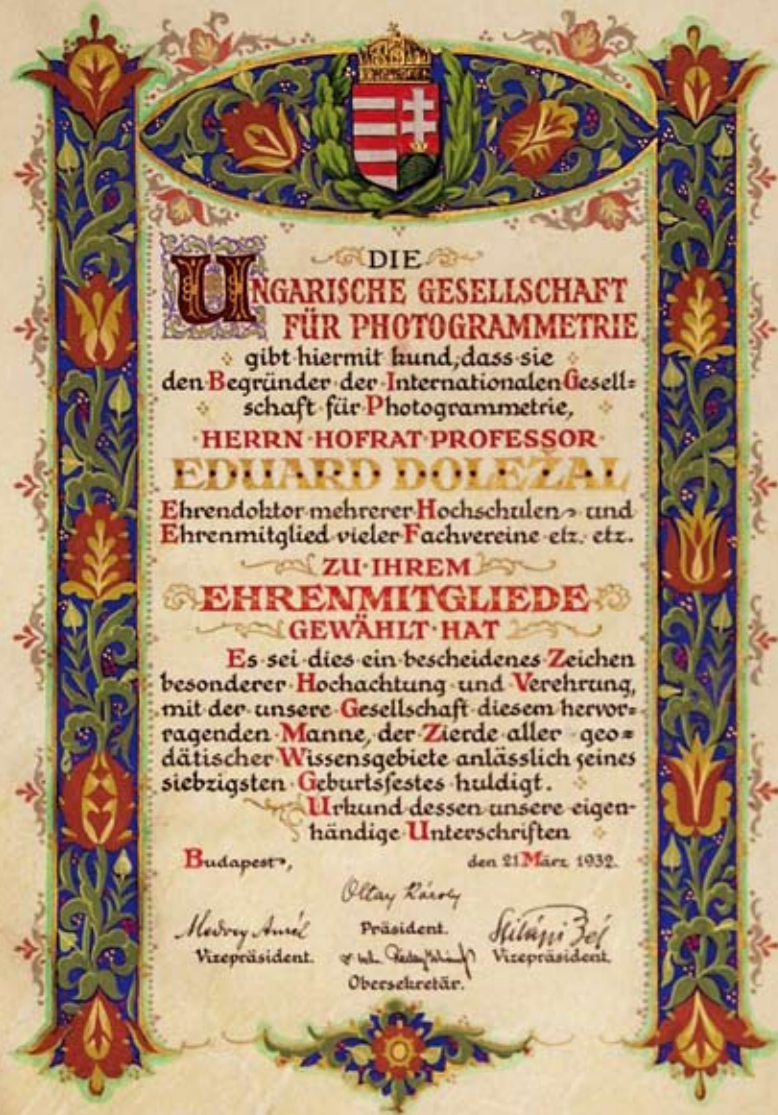 DIE
UNGARISCHE GESELLSCHAFT
FÜR PHOTOGRAMMETRIE
gibt hiermit kund, dass sie
den Begründer der Internationalen Gesell=
schaft für Photogrammetrie,
HERRN HOFRAT PROFESSOR
EDUARD DOLEŽAL
Ehrendoktor mehrerer Hochschulen und
Ehrenmitglied vieler Fachvereine etz. etz.
ZU IHREM
EHRENMITGLIEDE
GEWÄHLT HAT
Es sei dies ein bescheidenes Zeichen
besonderer Hochachtung und Verehrung,
mit der unsere Gesellschaft diesem hervor=
ragenden Manne, der Zierde aller geo=
dätischer Wissensgebiete anlässlich seines
siebzigsten Geburtsfestes huldigt.
Urkund dessen unsere eigen-
händige Unterschriften
Budapest, den 21 März 1932.
Oltay Károly
Medvey Aurél Präsident.
Vizepräsident. Vizepräsident.
Obersekretär.